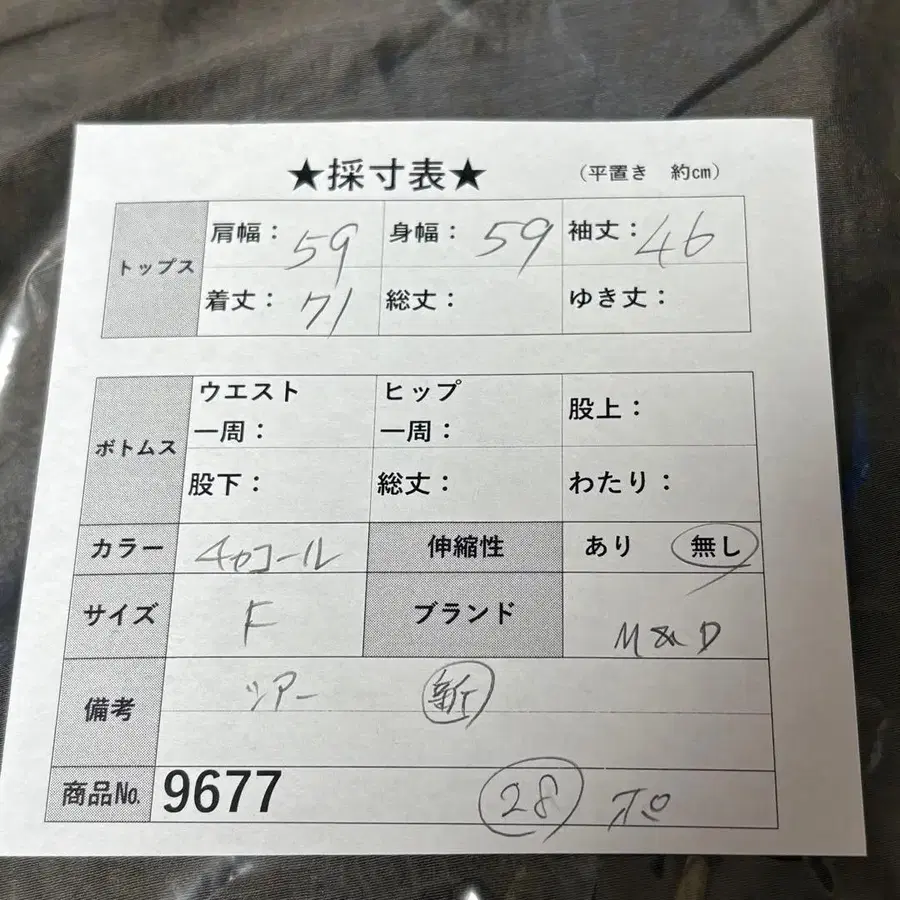 ★採寸表★ (平置き 約cm)
トップス 肩幅：59 身幅：59 袖丈：46
着丈：71 総丈： ゆき丈：
ボトムス ウエスト一周： ヒップ一周： 股上：
股下： 総丈： わたり：
カラー チャコール 伸縮性 あり 無し
サイズ F ブランド M&D
備考 シアー 新
商品No. 9677 28